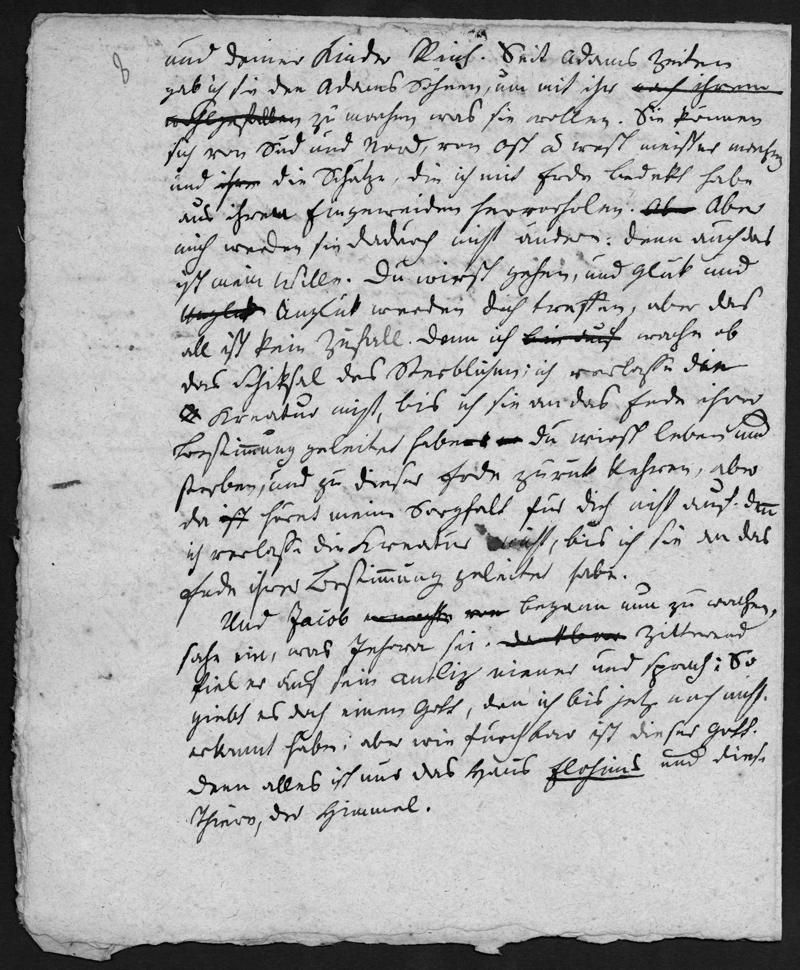 8
und deiner Kinder Reich. Seit Adams Zeiten
gab ich sie den Adams Söhnen, um mit ihr nach ihrem
wohlgefallen zu machen was sie wollen. Sie können
sich von Süd und Nord, von Ost u west meister machen
und ihre die Schäze, die ich mit Erde bedekt habe
aus ihren Eingeweiden hervorholen. Abe Aber
mich werden sie dadurch nicht ändern: denn auch das
ist mein Wille. Du wirst gehen, und Glük und
Unglük Unglük werden dich treffen, aber das
all ist kein Zufall. Denn ich bin auf wache ob
das Schiksal des Sterblichen; ich verlasse die
Kreatur nicht, bis ich sie an das Ende ihrer
Bestimung geleitet habe du wirst leben und
sterben, und zu dieser Erde zurük kehren, aber
da ist höret meine Sorgfalt für dich nicht auf. den
ich verlasse die Kreatur nicht, bis ich sie an das
Ende ihrer Bestimung geleitet habe.
Und Jacob erwachte von begann nun zu wachen,
sahe ein, was Jehova sei. Zitternd
fiel er auf sein Antliz nieder und sprach: So
giebt es doch einen Gott, den ich bis jetz noch nicht
erkannt habe; aber wie furchbar ist dieser Gott.
denn alles ist nur das Haus Elohims und diese
Thiere, der Himmel.